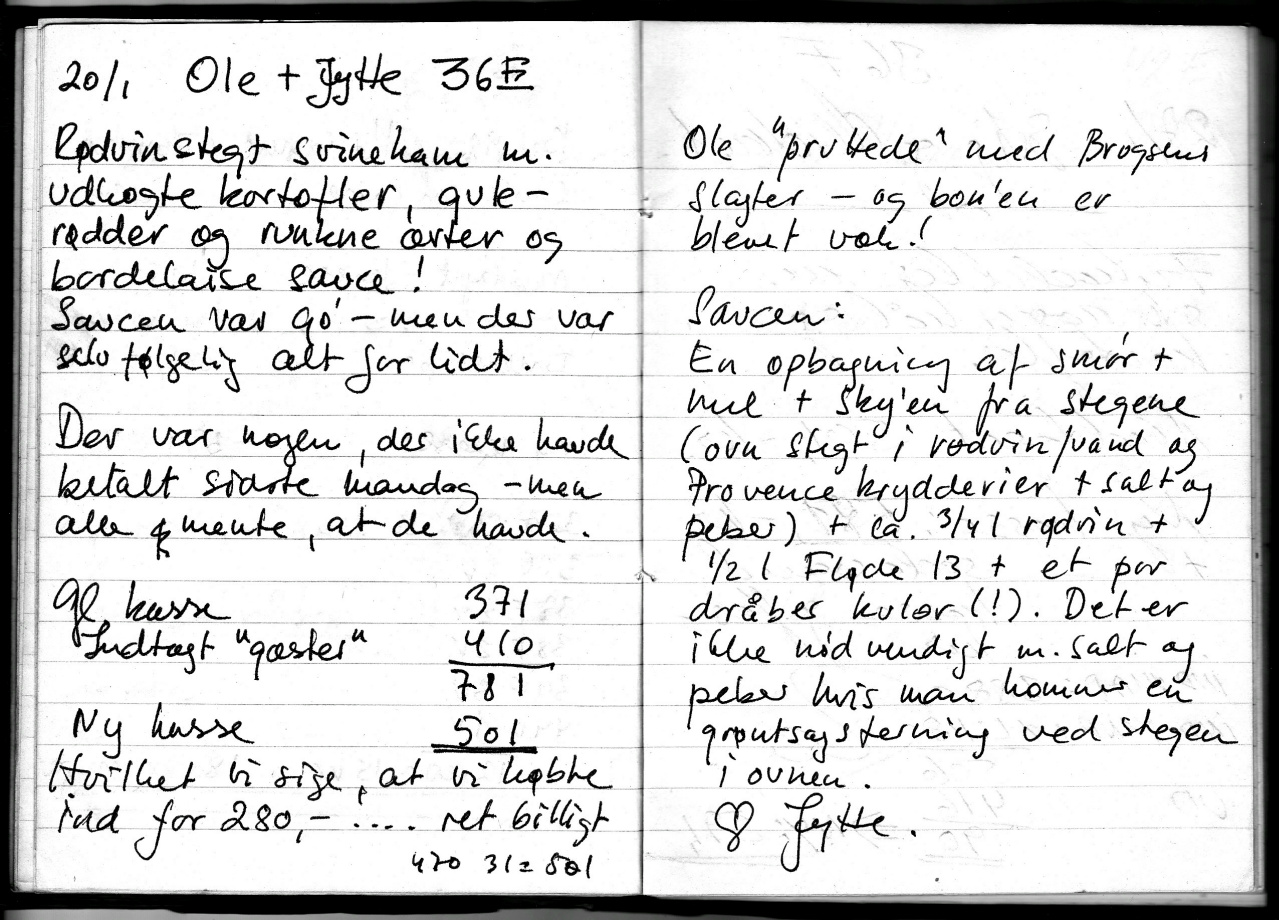 20/1 Ole + Jytte 36E
Rødvinstegt svinekam m.
udkogte kartofler, gule-
rødder og runkne ærter og
bordelaise sauce!
Saucen var go' - men der var
selvfølgelig alt for lidt.
Der var nogen, der ikke havde
betalt sidste mandag - men
alle mente, at de havde.
Gl kasse 371
Indtægt "gæster" 410
781
Ny kasse 501
Hvilket vi sige, at vi købte
ind for 280,- .... ret billigt
470 31 = 501
Ole "pruttede" med Brugsens
slagter - og bon'en er
blevet væk!
Saucen:
En opbagning af smør +
mel + sky'en fra stegene
(ovnstegt i rødvin/vand og
Provence krydderier + salt og
peber) + ca. 3/4 l rødvin +
1/2 l Fløde 13 + et par
dråber kulør (!). Det er
ikke nødvendigt m. salt og
peber hvis man kommer en
grøntsagsterning ved stegen
i ovnen.
♡ Jytte.